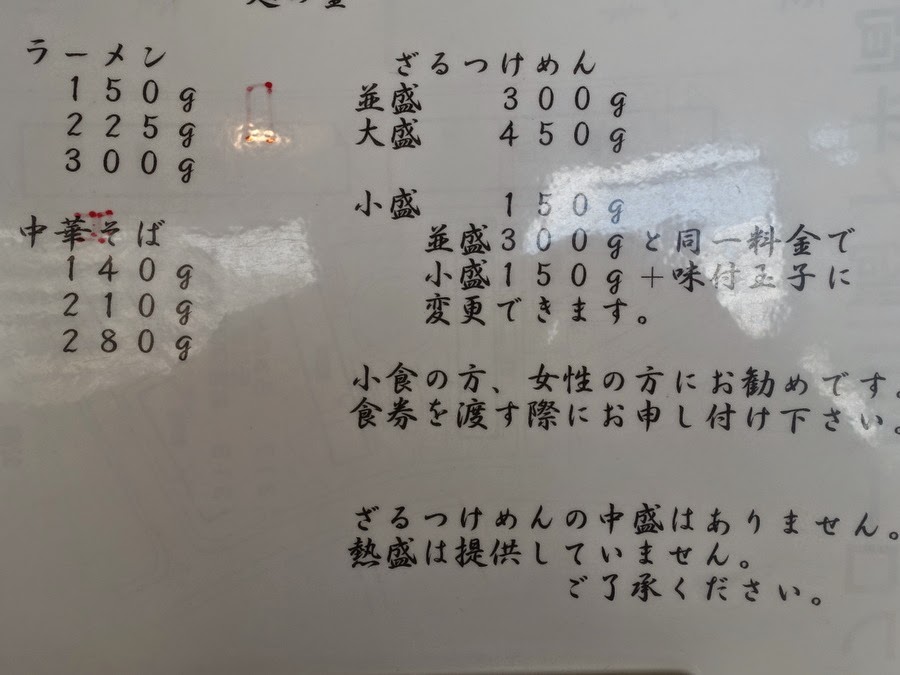 ラーメン
150g
225g
300g
中華そば
140g
210g
280g
ざるつけめん
並盛 300g
大盛 450g
小盛 150g
並盛300gと同一料金で
小盛150g＋味付玉子に
変更できます。
小食の方、女性の方にお勧めです。
食券を渡す際にお申し付け下さい。
ざるつけめんの中盛はありません。
熱盛は提供していません。
ご了承ください。